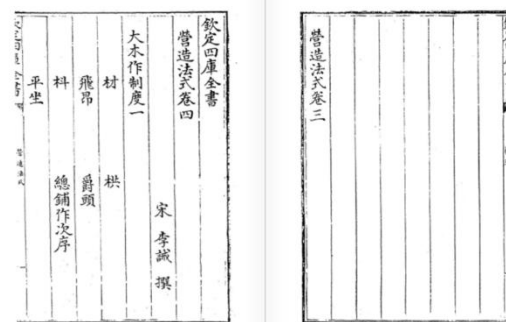 營造法式卷三
欽定四庫全書
營造法式卷四
宋 李誡 撰
大木作制度一
材 栱
飛昂 爵頭
枓 總鋪作次序
平坐
營造法式